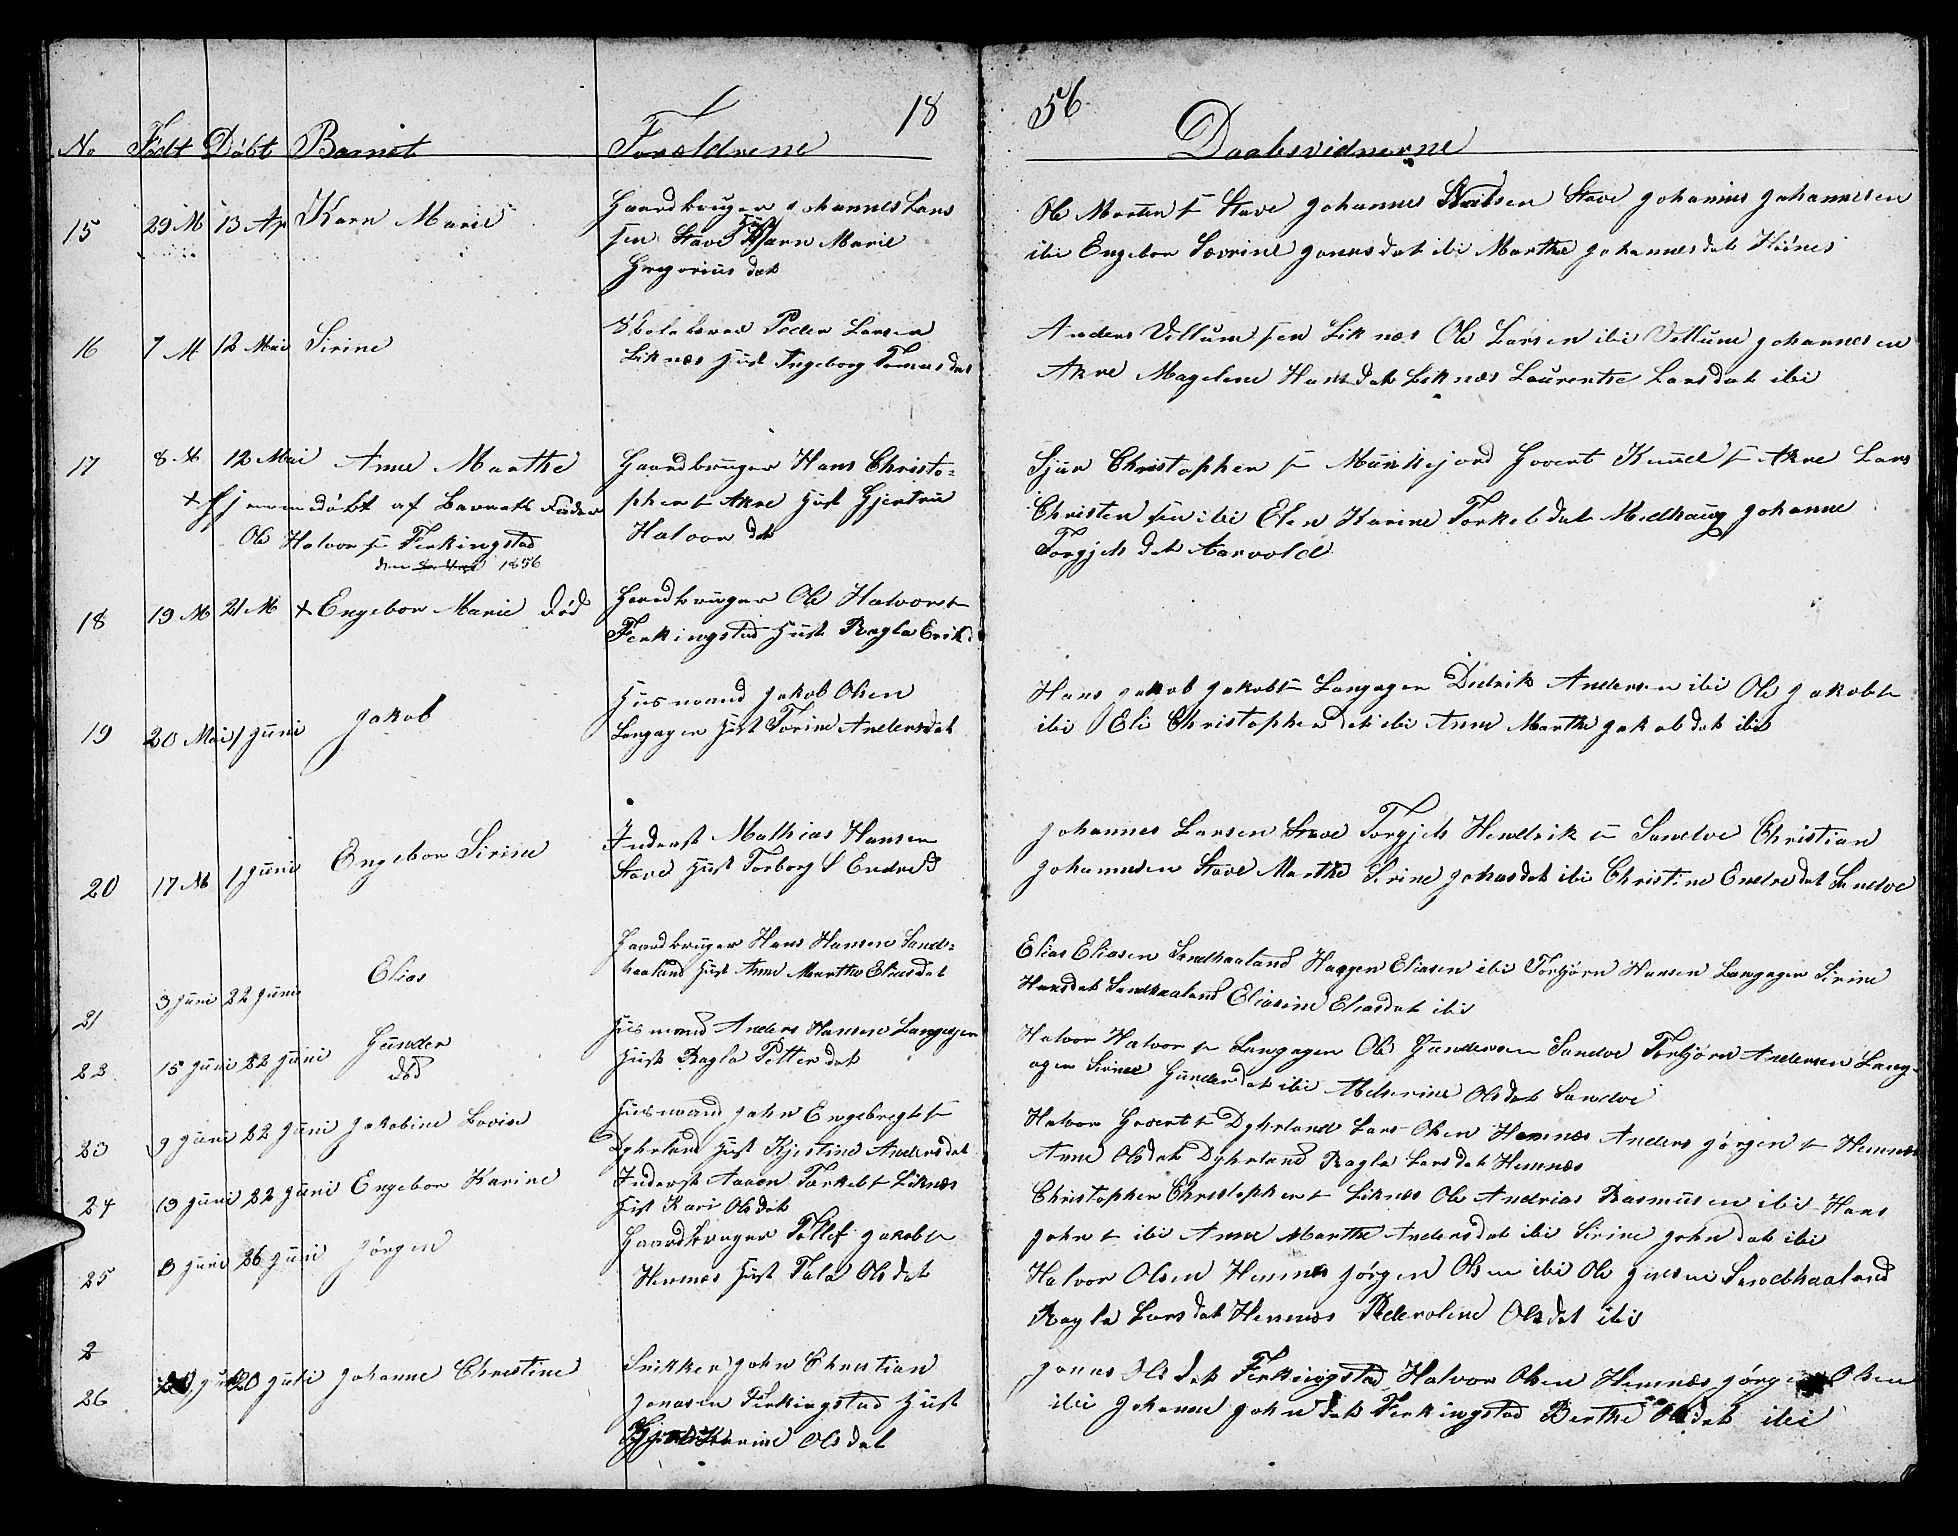 18 56
No Født Døbt Barnet Forældrene Daabsvidnerne
15 29 M 13 Ap Karn Marie
Gaardbruger Johannes Lars
sen Stave Karn Marie
Gregorius dat
Ole Morten s Stave Johannes Stave Johannes Johannesen
ibi Engebor Sevrine Jonasdat ibi Marthe Johannesdat Hiines
16 7 M 12 Mai Sirine
Skolelærer Peder Larsen
Liknæs Hust Ingeborg Tomasdat
Anders Villum sen Liknæs Ole Larsen ibi Villum Johannesen
Akre Magelene Hansdat Liknæs Laurentse Larsdat ibi
17 8 M 12 Mai Anne Marthe
+ Hjemmedøbt af Barnets Fader
Ole Halvor s Ferkingstad
den 1856
Gaardbruger Hans Christo=
pher s Akre Hust Gjertru
Halvor dat
Sjur Christopher s Munkejord Govert Knud s Akre Lars
Christen sen ibi Elen Karine Torkel dat Medhaug Johanne
Torgjels dat Aarvold
18 19 M 21 M + Engebor Marie Død
Gaardbruger Ole Halvors
Ferkingstad Hust Ragla Erikd
19 20 Mai 1 Juni Jakob
Husmand Jakob Olsen
Langager Hust Torine Andersdat
Hans Jakob Jakobs Langager Didrik Andersen ibi Ole Jakobs
ibi Eli Christopherdat ibi Anne Marthe Jakobdat ibi
20 17 M 1 Juni Engebor Sirine
Inderst Mathias Hansen
Stave Hust Torborg S Endred
Johannes Larsen Stave Torgjels Hendrik s Sandve Christian
Johannesen Stave Marthe Sirine Johasdat ibi Christine Endredat Sandve
21 3 Juni 22 Juni Elias
Gaardbruger Hans Hansen Sand=
haaland Hust Anne Marthe Eliasdat
Elias Eliasen Sandhaaland Haggen Eliasen ibi Torbjørn Hansen Langager Sirine
Hansdat Sandhaaland Eliasine Eliasdat ibi
22 15 Juni 22 Juni Gunder
Død
Husmand Anders Hansen Langager
Hust Ragla Petter dat
Halvor Halvor s Langager Ole Gundersen Sandve Torbjørn Andersen Lang-
ager Sirine Gunderdat ibi Olsdat Sandve
23 9 Juni 22 Juni Jakobine Lovise
Husmand John Engebregt s
Dyhrland Hust Kjestine Andersdat
Halvor Govert s Dyhrland Lars Olsen Hemnæs Anders Jørgen s Hemnæs
Anne Olsdat Dyhrland Ragla Larsdat Hemnæs
24 13 Juni 22 Juni Engebor Karine
Inderst Aaron Torkels Liknæs
Hust Kari Olsdat
Christopher Christophers Liknæs Ole Andrias Rasmusen ibi Hans
John s ibi Anne Marthe Andersdat ibi Sirine John dat ibi
25 3 Juni 26 Juni Jørgen
Gaardbruger Tollef Jakobs
Hemnæs Hust Tala Olsdat
Halvor Olsen Hemnes Jørgen Olsen ibi Ole Jensen Sandhaaland
Ragla Larsdat Hemnæs Pederoline Olsdat ibi
2
26 20 Juli Johanne Christine
Snikker John Christian
Jonasen Ferkingstad Hust
Karine Olsdat
Jonas Olsdat Ferkingstad Halvor Olsen Hemnæs Jørgen Olsen
ibi Johanne John dat Ferkingstad Berthe Olsdat ibi